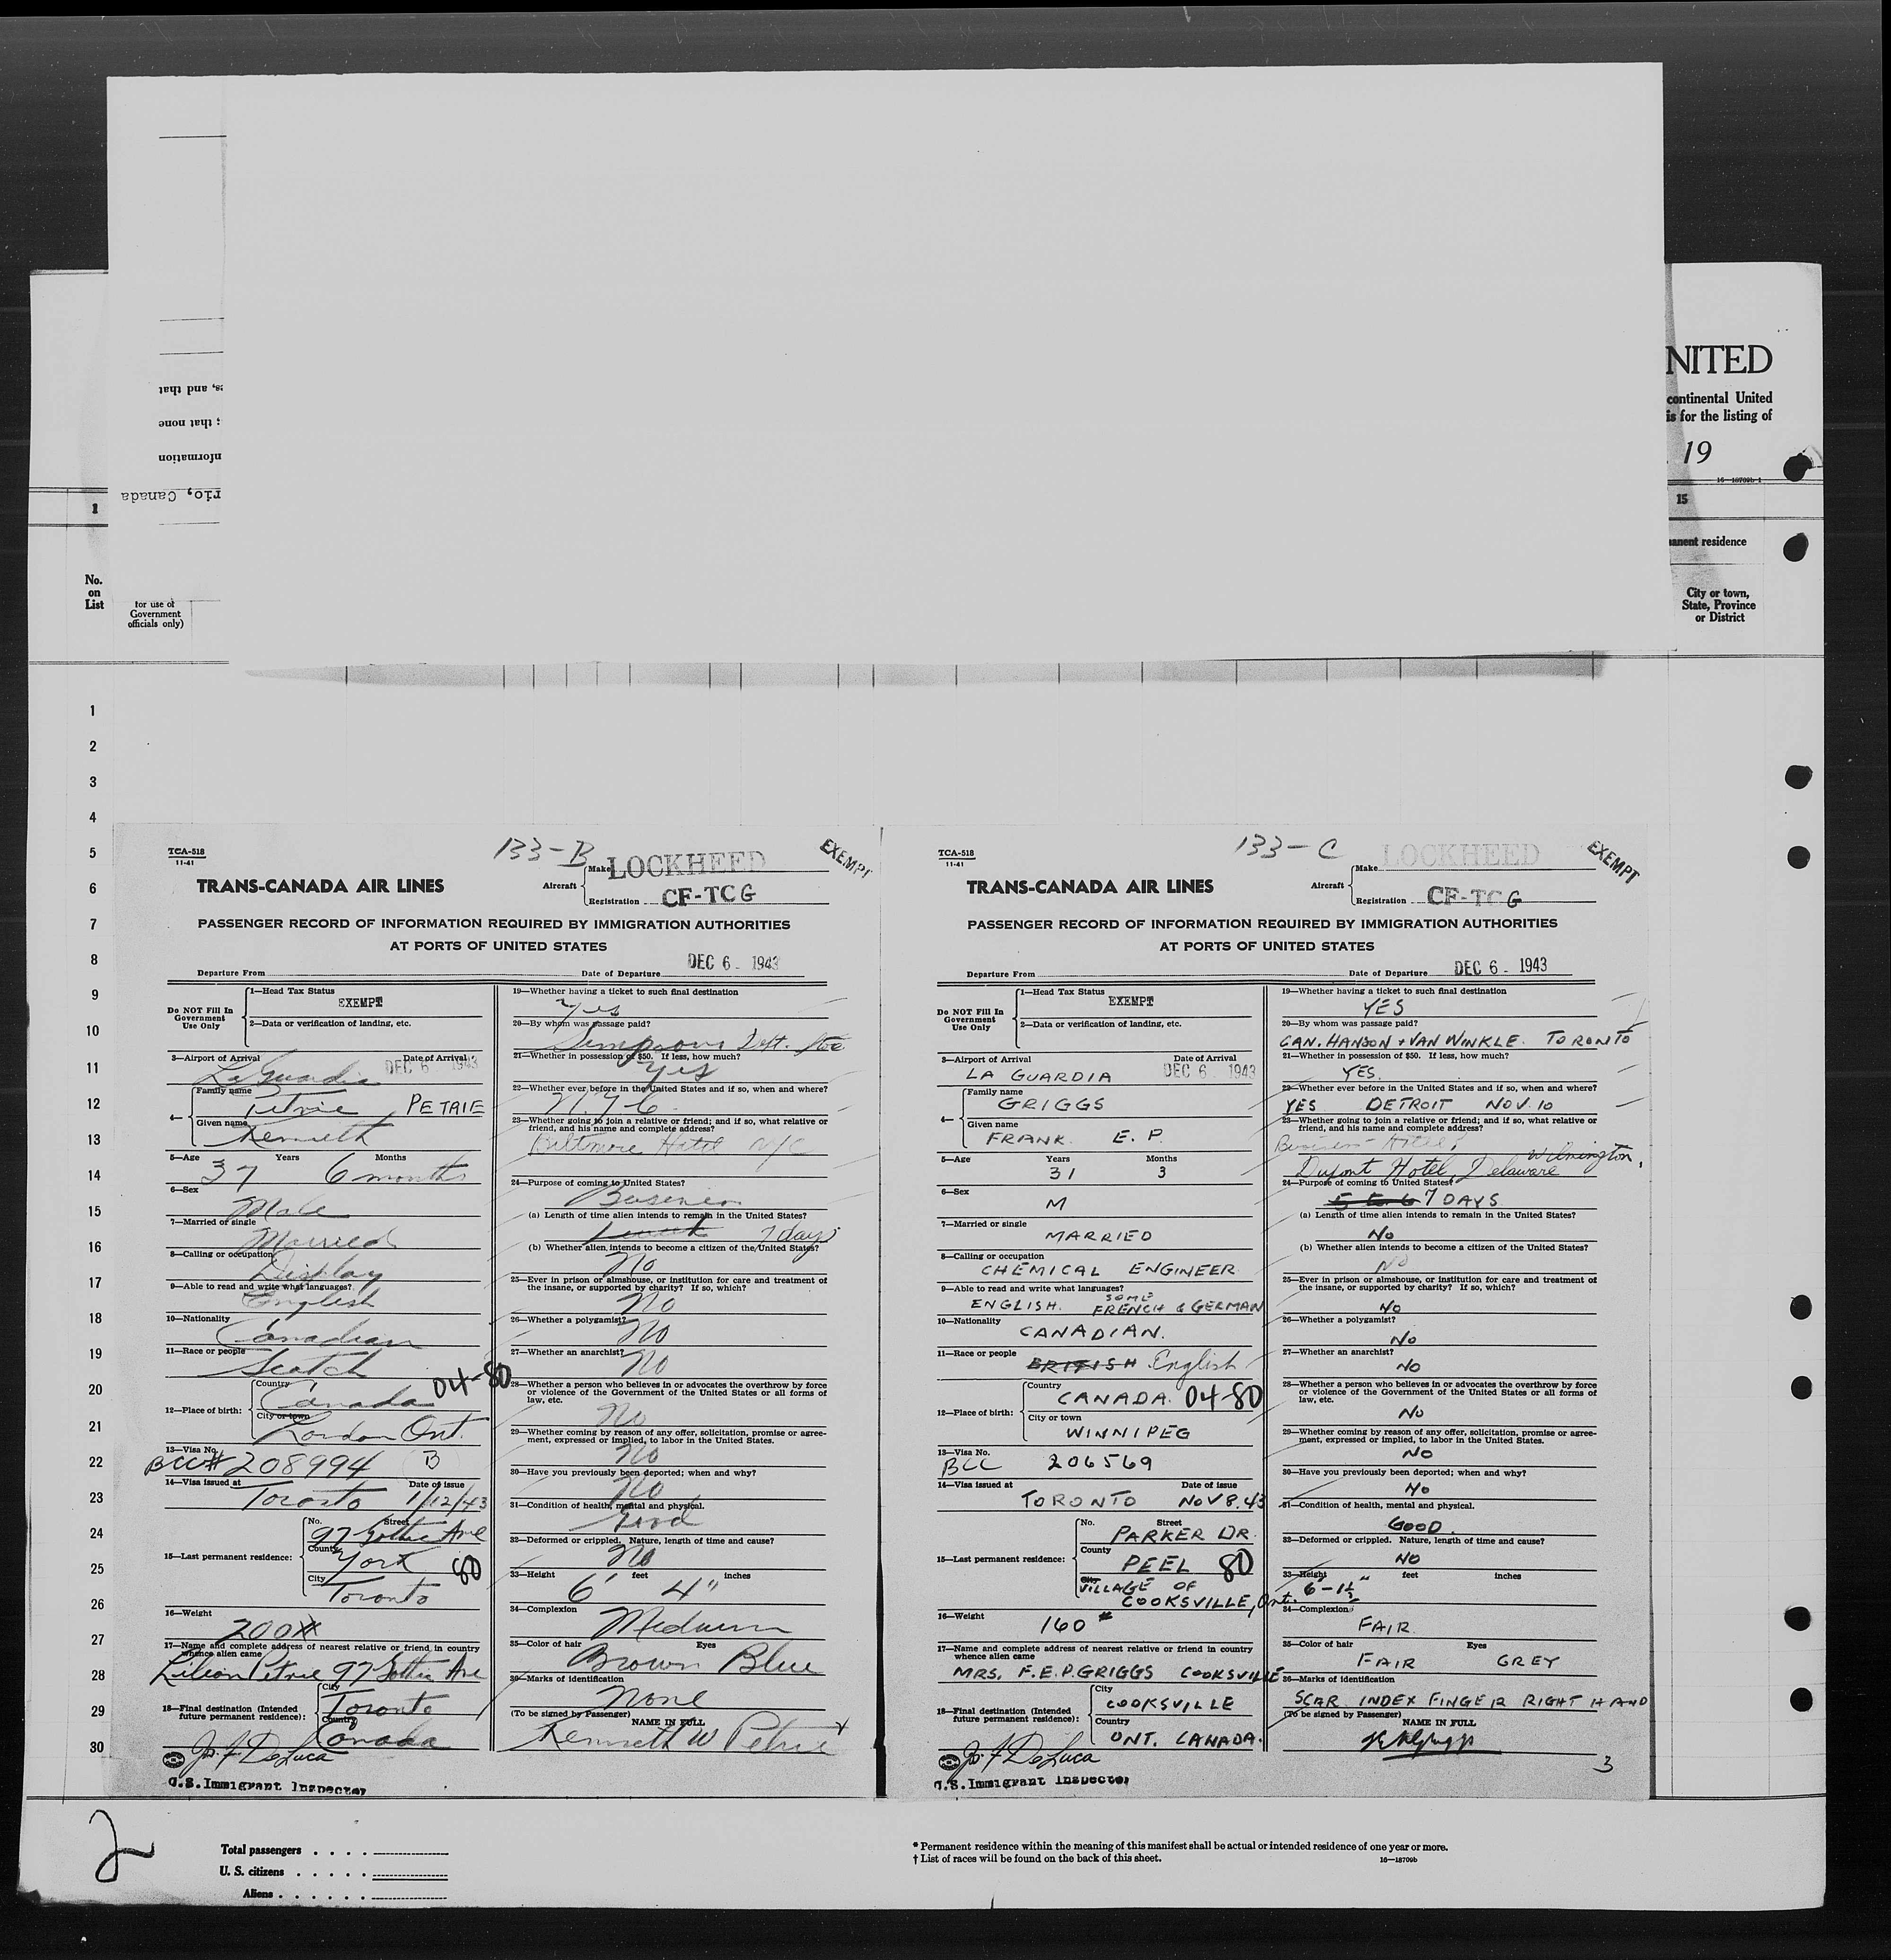 NITED
continental United
is for the listing of
19
16—18709b-1
1
15
anent residence
No.
on
List
for use of
Government
officials only)
City or town,
State, Province
or District
s, and that
; that none
nformation
rio, Canada
1
2
3
4
5
6
7
8
9
10
11
12
13
14
15
16
17
18
19
20
21
22
23
24
25
26
27
28
29
30
TCA-518
11-41
133-B
EXEMPT
Aircraft
Make LOCKHEED
Registration CF-TCG
TRANS-CANADA AIR LINES
PASSENGER RECORD OF INFORMATION REQUIRED BY IMMIGRATION AUTHORITIES
AT PORTS OF UNITED STATES
Departure From
Date of Departure DEC 6 - 1943
Do NOT Fill In
Government
Use Only
1—Head Tax Status
EXEMPT
2—Data or verification of landing, etc.
3—Airport of Arrival
Date of Arrival
La Guardia DEC 6 1943
4—
Family name
Petrie PETRIE
Given name
Kenneth
5—Age Years Months
37 6 months
6—Sex
Male
7—Married of single
Married
8—Calling or occupation
Display
9—Able to read and write what languages?
English
10—Nationality
Canadian
11—Race or people
Scotch
12—Place of birth:
Country
Canada 04-80
City or town
London Ont.
13—Visa No.
BCC# 208994 B
14—Visa issued at Date of issue
Toronto 1/12/43
15—Last permanent residence:
No. Street
97 Gothic Ave
County
York 80
City
Toronto
16—Weight
200#
17—Name and complete address of nearest relative or friend in country
whence alien came
Petrie 97 Gothic Ave
18—Final destination (Intended
future permanent residence):
City
Toronto
Country
Canada
Jos. F. DeLuca
U.S. Immigrant Inspector
19—Whether having a ticket to such final destination
Yes
20—By whom was passage paid?
Simpsons Dept.
21—Whether in possession of $50. If less, how much?
Yes
22—Whether ever before in the United States and if so, when and where?
N.Y.C.
23—Whether going to join a relative or friend; and if so, what relative or
friend, and his name and complete address?
Biltmore Hotel NYC
24—Purpose of coming to United States?
Business
(a) Length of time alien intends to remain in the United States?
1 week 7 days
(b) Whether alien intends to become a citizen of the United States?
No
25—Ever in prison or almshouse, or institution for care and treatment of
the insane, or supported by charity? If so, which?
No
26—Whether a polygamist?
No
27—Whether an anarchist?
No
28—Whether a person who believes in or advocates the overthrow by force
or violence of the Government of the United States or all forms of
law, etc.
No
29—Whether coming by reason of any offer, solicitation, promise or agree-
ment, expressed or implied, to labor in the United States.
No
30—Have you previously been deported; when and why?
No
31—Condition of health, mental and physical.
Good
32—Deformed or crippled. Nature, length of time and cause?
No
33—Height feet inches
6' 4"
34—Complexion
Medium
35—Color of hair Eyes
Brown Blue
36—Marks of identification
None
(To be signed by Passenger)
NAME IN FULL
Kenneth W Petrie
TCA-518
11-41
133-C
EXEMPT
Aircraft
Make LOCKHEED
Registration CF-TCG
TRANS-CANADA AIR LINES
PASSENGER RECORD OF INFORMATION REQUIRED BY IMMIGRATION AUTHORITIES
AT PORTS OF UNITED STATES
Departure From
Date of Departure DEC 6 - 1943
Do NOT Fill In
Government
Use Only
1—Head Tax Status
EXEMPT
2—Data or verification of landing, etc.
3—Airport of Arrival
Date of Arrival
LA GUARDIA DEC 6 1943
4—
Family name
GRIGGS
Given name
FRANK E. P.
5—Age Years Months
31 3
6—Sex
M
7—Married or single
MARRIED
8—Calling or occupation
CHEMICAL ENGINEER
9—Able to read and write what languages?
ENGLISH. SOME FRENCH & GERMAN
10—Nationality
CANADIAN.
11—Race or people
BRITISH English
12—Place of birth:
Country
CANADA. 04-80
City or town
WINNIPEG
13—Visa No.
BCC 206569
14—Visa issued at Date of issue
TORONTO NOV 8.43
15—Last permanent residence:
No. Street
PARKER DR.
County
PEEL 80
City
VILLAGE OF
COOKSVILLE, Ont.
16—Weight
160#
17—Name and complete address of nearest relative or friend in country
whence alien came
MRS. F.E.P. GRIGGS COOKSVILLE
18—Final destination (Intended
future permanent residence):
City
COOKSVILLE
Country
ONT. CANADA.
Jos. F. DeLuca
U.S. Immigrant Inspector
19—Whether having a ticket to such final destination
YES
20—By whom was passage paid?
CAN. HANSON & VAN WINKLE. TORONTO
21—Whether in possession of $50. If less, how much?
YES.
22—Whether ever before in the United States and if so, when and where?
YES DETROIT NOV. 10
23—Whether going to join a relative or friend; and if so, what relative or
friend, and his name and complete address?
Business - Hotel
Dupont Hotel, Wilmington, Delaware
24—Purpose of coming to United States?
5 to 6 7 DAYS
(a) Length of time alien intends to remain in the United States?
No
(b) Whether alien intends to become a citizen of the United States?
NO
25—Ever in prison or almshouse, or institution for care and treatment of
the insane, or supported by charity? If so, which?
No
26—Whether a polygamist?
No
27—Whether an anarchist?
No
28—Whether a person who believes in or advocates the overthrow by force
or violence of the Government of the United States or all forms of
law, etc.
No
29—Whether coming by reason of any offer, solicitation, promise or agree-
ment, expressed or implied, to labor in the United States.
NO
30—Have you previously been deported; when and why?
No
31—Condition of health, mental and physical.
GOOD.
32—Deformed or crippled. Nature, length of time and cause?
NO
33—Height feet inches
6'-1½"
34—Complexion
FAIR.
35—Color of hair Eyes
FAIR GREY
36—Marks of identification
SCAR. INDEX FINGER RIGHT HAND
(To be signed by Passenger)
NAME IN FULL
3
2
Total passengers
U. S. citizens
Aliens
* Permanent residence within the meaning of this manifest shall be actual or intended residence of one year or more.
† List of races will be found on the back of this sheet.
16—18709b